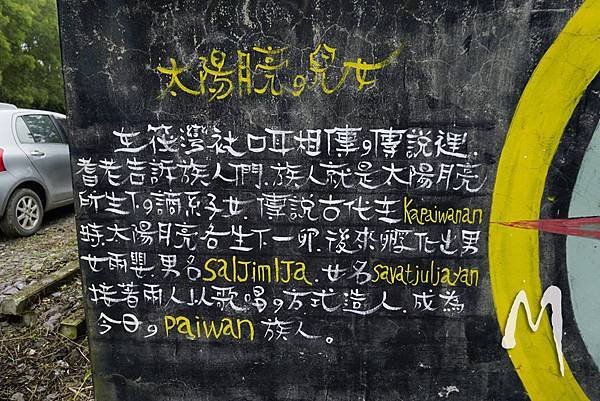 太陽月亮的兒女
在筏灣社口耳相傳的傳說裡,
耆老告訴族人們,族人就是太陽月亮
所生下的嫡系子女,傳說古代在Kapaiwanan
時,太陽月亮各生下一卵,後來孵化出男
女兩嬰,男名saljimlja,女名savatjuljayan
接著兩人以歌唱的方式造人,成為
今日的paiwan族人。
M